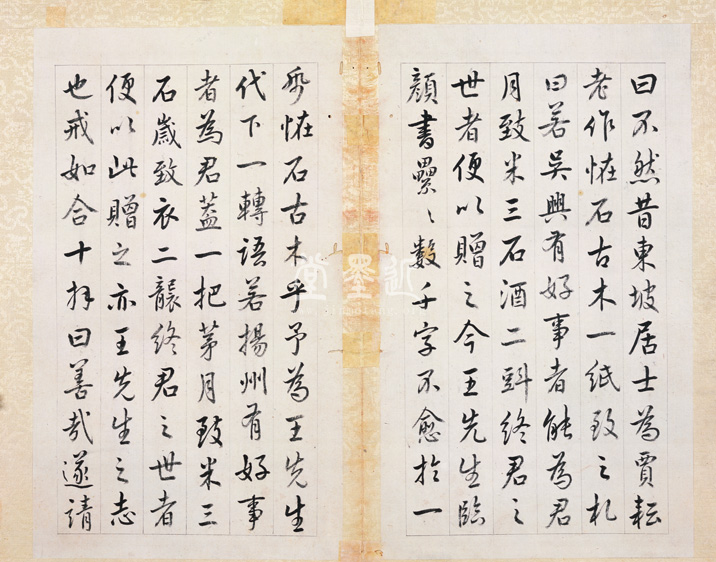 曰不然昔東坡居士為賈耘
老作怪石古木一紙致之札
曰若吳興有好事者能為君
月致米三石酒二㪷終君之
世者便以贈之今王先生臨
顏書纍〻數千字不愈於一
紙怪石古木乎予為王先生
代下一轉語若揚州有好事
者為君蓋一把茅月致米三
石歲致衣二襲終君之世者
便以此贈之亦王先生之志
也戒如合十拜曰善哉遂請
近墨堂